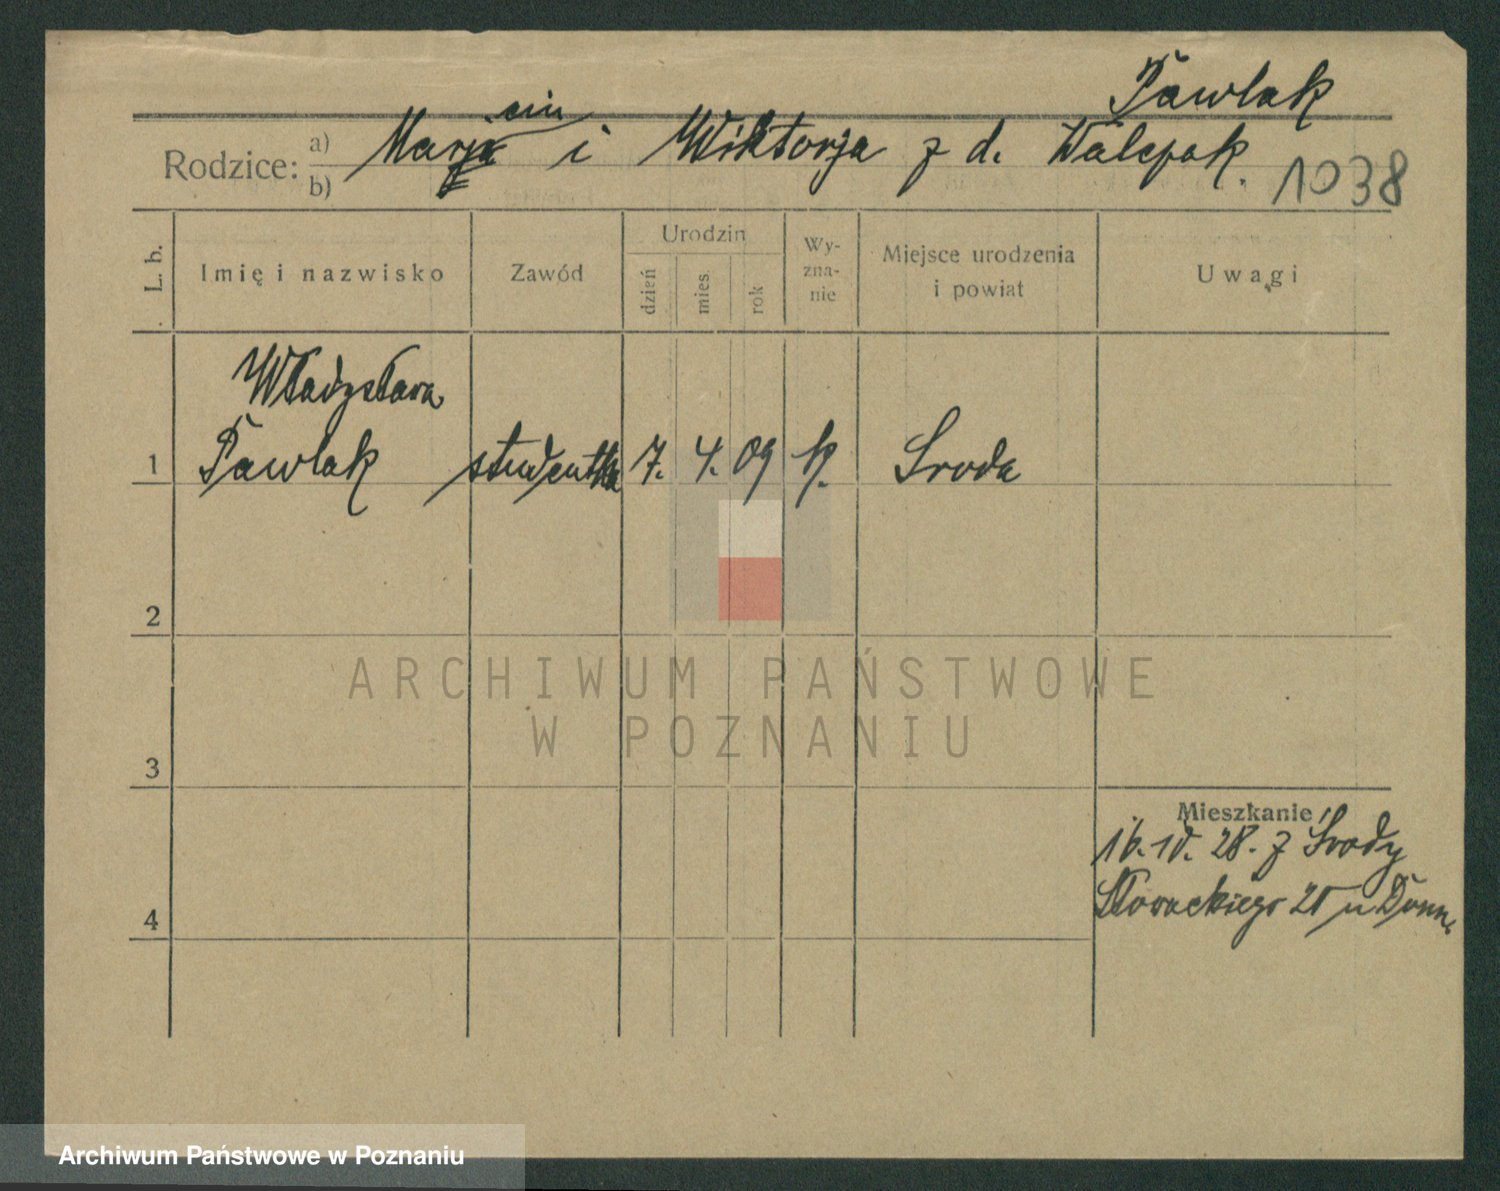 Pawlak
cin
Rodzice: a) Marja i Wiktorja z d. Walczak.
b)
1038
L. b.
Imię i nazwisko
Zawód
Urodzin
dzień
mies.
rok
Wy-
zna-
nie
Miejsce urodzenia
i powiat
Uwagi
Władysława
1 Pawlak studentka 7. 4. 09 k. Środa
2
ARCHIWUM PAŃSTWOWE
W POZNANIU
3
Mieszkanie
28. z Środy
Słowackiego u
4
Archiwum Państwowe w Poznaniu